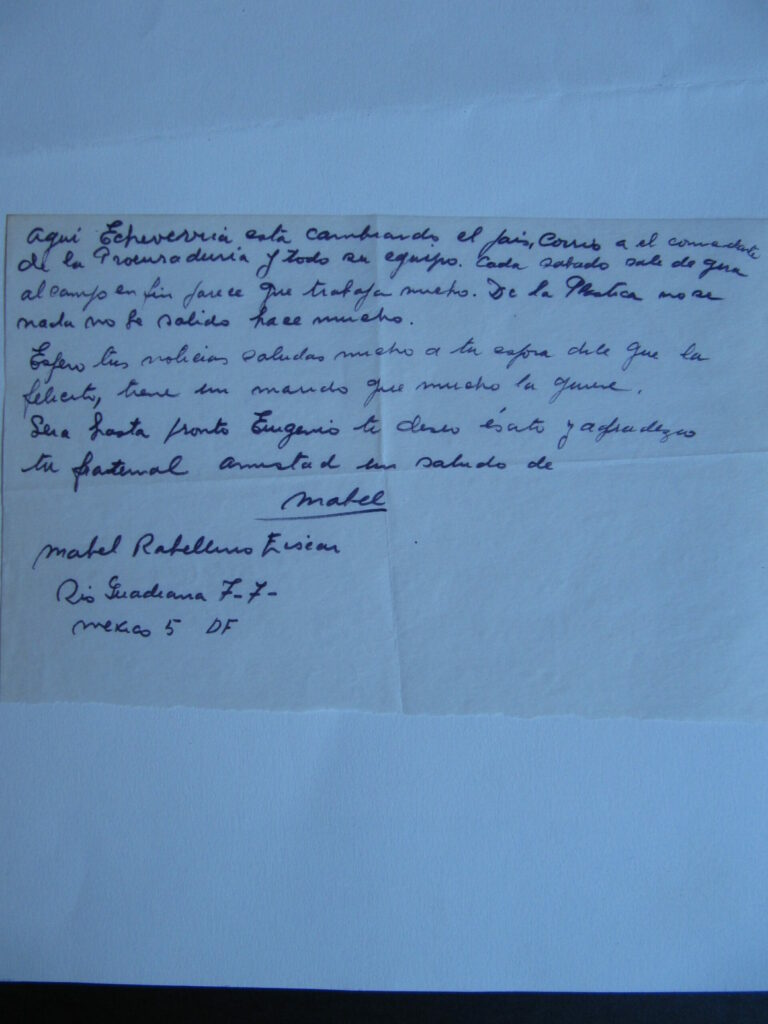 Aqui Echeverria está cambiando el pais, Corrió a el comandante
de la Procuraduria y todo su equipo. Cada sabado sale de gira
al campo en fin parece que trabaja mucho. De la Plastica no se
nada no he salido hace mucho.
Espero tus noticias saludas mucho a tu esposa dile que la
felicito, tiene un marido que mucho la quiere.
Sera hasta pronto Eugenio te deseo éxito y agradezco
tu fraternal amistad un saludo de
Mabel
Mabel Rabellino
Rio Guadiana 7-7-
Mexico 5 DF